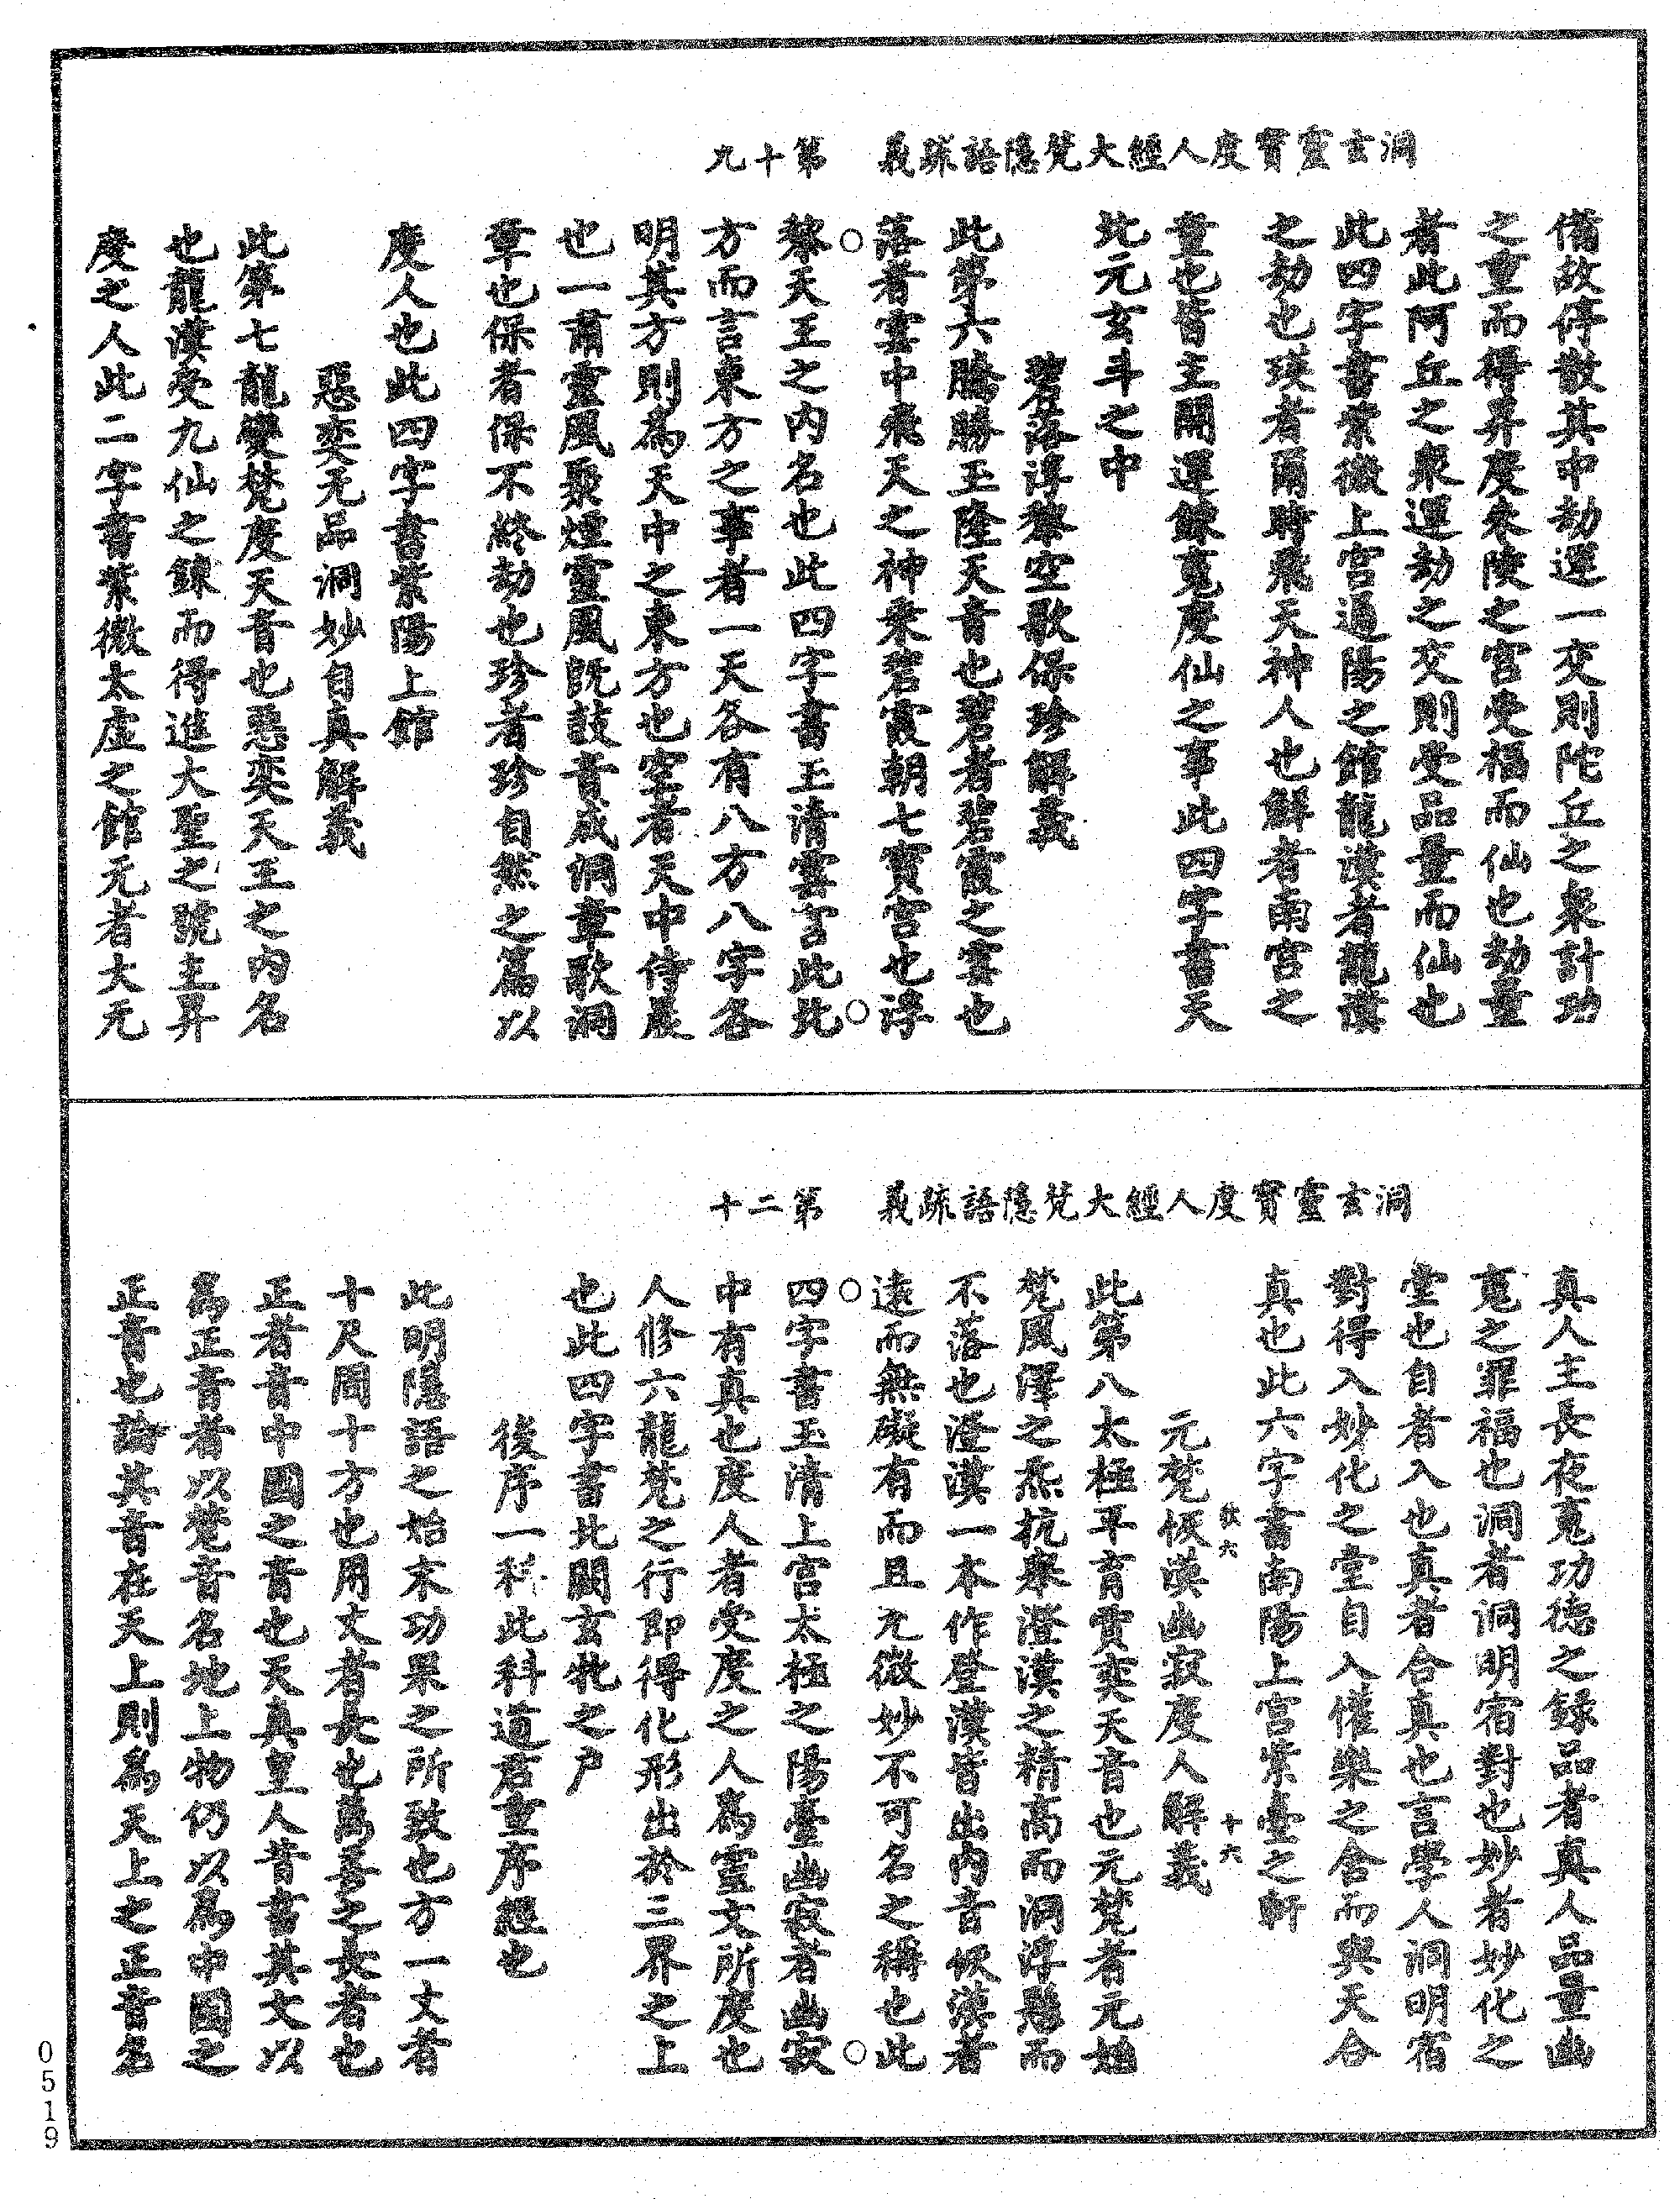 洞玄靈寶度人經大梵隱語疏義　第十九
備故停散其中劫運一交則陀丘之衆計功
之重而得昇度朱陵之宮受福而仙也劫量
者此阿丘之衆運劫之交則受品量而仙也
此四字書紫微上宮通陽之館龍漢者龍漢
之劫也瑛者爾時飛天神人也鮮者南宮之
童也皆主開運鍊䰟度仙之事此四字書天
北元玄斗之中
碧落浮黎空歌保珍解義
此第六騰勝玉隆天音也碧者碧霞之雲也
落者雲中飛天之神乘碧霞朝七寶宮也浮
黎天王之內名也此四字書玉清雲宮此北
方而言東方之事者一天各有八方八字各
明其方則爲天中之東方也空者天中侍晨
也一爾靈風聚煙靈風旣鼓音成洞章歌洞
章也保者保不終劫也珍者珍自然之篇以
度人也此四字書紫陽上館
惡奕无品洞妙自真解義
此第七龍變梵度天音也惡奕天王之內名
也龍漢受九仙之鍊而得進大聖之號主昇
度之人此二字書紫微太虛之館无者大无
洞玄靈寶度人經大梵隱語疏義　第二十
真人主長夜䰟功德之録品者真人品量幽
䰟之罪福也洞者洞明宿對也妙者妙化之
堂也自者入也真者合真也言學人洞明宿
對得入妙化之堂自入催樂之舍而與天合
真也此六字書南陽上宮紫臺之軒
十六
元梵恢漠幽寂度人解義
此第八太極平育賈奕天音也元梵者元始
梵風澤之炁抗舉澄漠之精高而洞浮懸而
不落也澄漠一本作登漢皆出內音恢漠者
遠而無礙有而且无微妙不可名之稱也此
四字書玉清上宮太極之陽臺幽寂者幽寂
中有真也度人者受度之人爲靈文所度也
人修六龍梵之行即得化形出於三界之上
也此四字書此闕玄牝之戶
後序一科此科道君重序經也
此明隱語之始末功果之所致也方一丈者
十尺周十方也用丈者長也萬善之長者也
正者音中國之音也天真皇人昔書其文以
爲正音者以梵音名地上物仍以爲中國之
正音也論其音在天上則爲天上之正音名
0519